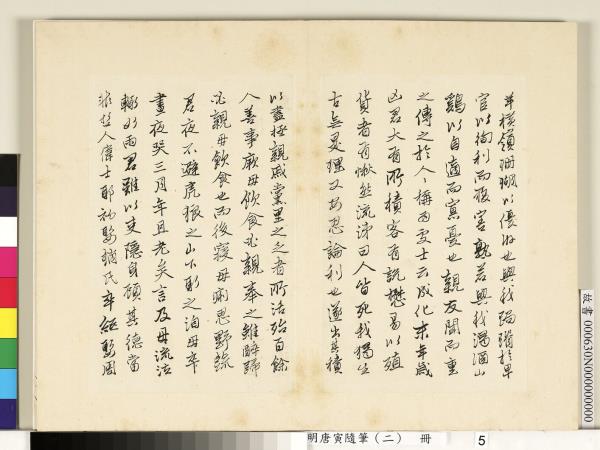 橫領珊瑚以優游也與我於卑
官以徇利而後害孰若與我濁酒山
鷄以自適而寡憂也親友聞而重
之傳之於人稱為處士云成化末年歲
凶君大有所積客有說懋易以殖
貨者君愀然流涕曰人皆死我獨生
古無是理又安忍論利也遂出其積
以盡拯親戚黨里之乏者所活殆百餘
人善事厥母飲食必親奉之雖醉歸
必親母飲食也而後寢母病思野
君夜不避虎狼之山下取之洎母卒
晝夜哭三月年且老矣言及母流泣
輒如雨君雖以吏隱自頤其德當
於人偉士耶初娶氏卒継娶周
故書 000630N000000000
明唐寅隨筆(二) 冊 5